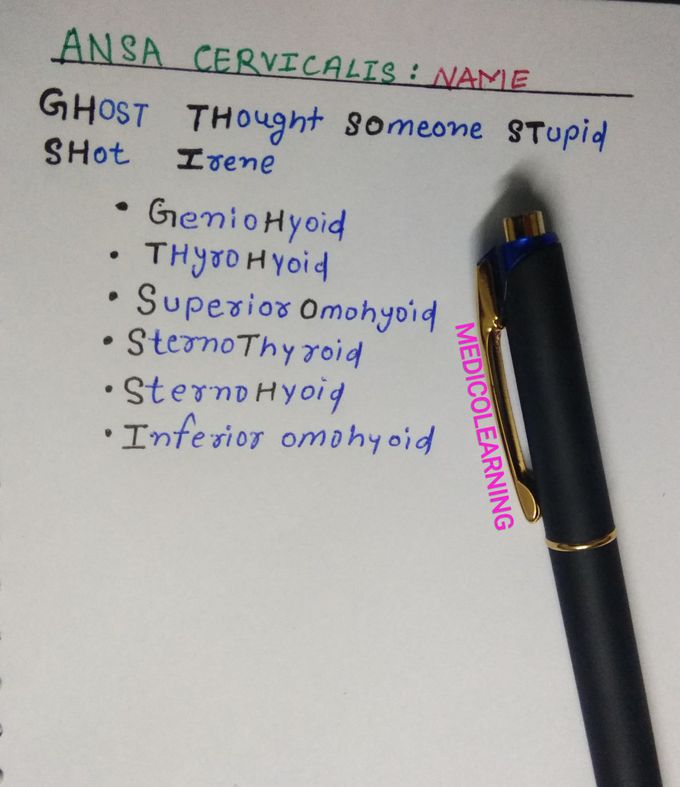 ANSA CERVICALIS: NAME
GHOST THought SOmeone STupid
SHot Irene
• GenioHyoid
• THyroHyoid
• Superior Omohyoid
• SternoThyroid
• SternoHyoid
• Inferior omohyoid
MEDICOLEARNING